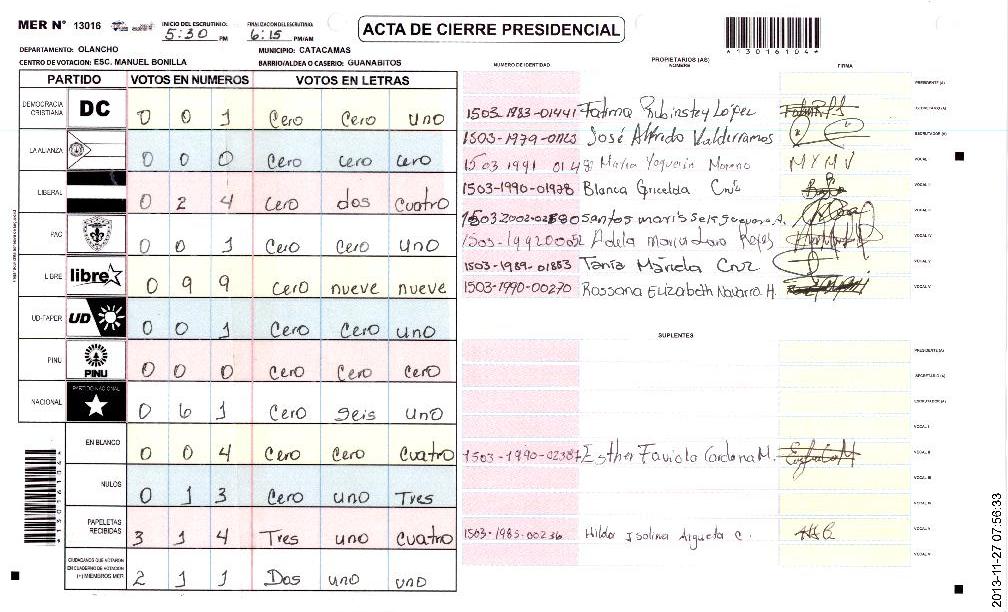 MER N° 13016 INICIO DEL ESCRUTINIO: 5:30 PM FINALIZACION DEL ESCRUTINIO: 6:15 PM/AM ACTA DE CIERRE PRESIDENCIAL
*13016104*
DEPARTAMENTO: OLANCHO MUNICIPIO: CATACAMAS
CENTRO DE VOTACION: ESC. MANUEL BONILLA BARRIO/ALDEA O CASERIO: GUANABITOS
PARTIDO VOTOS EN NUMEROS VOTOS EN LETRAS
DEMOCRACIA CRISTIANA DC 0 0 1 Cero Cero uno
LA ALIANZA 0 0 0 Cero cero cero
LIBERAL 0 2 4 Cero dos Cuatro
PAC 0 0 1 Cero Cero uno
LIBRE libre 0 9 9 Cero nueve nueve
UD-FAPER UD 0 0 1 Cero Cero uno
PINU PINU 0 0 0 Cero Cero Cero
NACIONAL PARTIDO NACIONAL 0 6 1 Cero Seis uno
EN BLANCO 0 0 4 Cero Cero Cuatro
NULOS 0 1 3 Cero uno Tres
PAPELETAS RECIBIDAS 3 1 4 Tres uno Cuatro
CIUDADANOS QUE VOTARON EN CUADERNO DE VOTACION (+) MIEMBROS MER 2 1 1 Dos uno uno
*13016104*
PROPIETARIOS (AS)
NUMERO DE IDENTIDAD NOMBRE FIRMA
PRESIDENTE (A)
1503-1983-01441 Fatima Rubinstey López SECRETARIO (A)
1503-1979-01123 José Alfredo Valderramos ESCRUTADOR (A)
1503 1991 Maria Moreno MYMV VOCAL I
1503-1990-01978 Blanca Gricelda Cruz VOCAL II
Santos VOCAL III
Adela Maria Reyes VOCAL IV
1503-1989-01853 Tania Mariela Cruz VOCAL V
1503-1990-00270 Rossana Elizabeth Navarra H. VOCAL V
SUPLENTES
PRESIDENTE (A)
SECRETARIO (A)
ESCRUTADOR (A)
VOCAL I
1503-1990-02387 Esther Faviola Cardona M. VOCAL II
VOCAL III
VOCAL IV
1503-1985-00236 Hilda Isolina Argueta C. VOCAL V
VOCAL V
2013-11-27 07:56:33